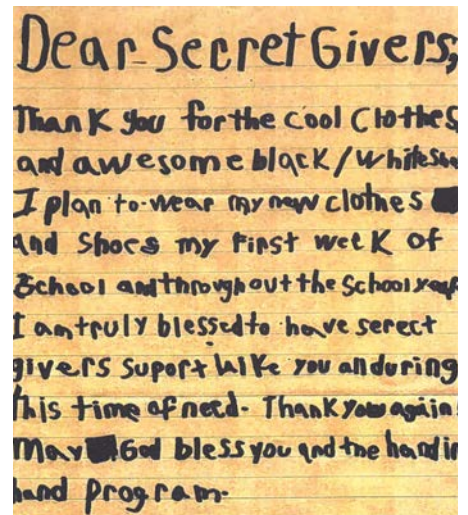 Dear Secret Givers,
Thank you for the cool clothes
and awesome black/white
I plan to wear my new clothes
and shoes my first week of
School and throughout the School year
I am truly blessed to have serect
givers suport like you all during
this time of need. Thank you again
May God bless you and the hand in
hand program.